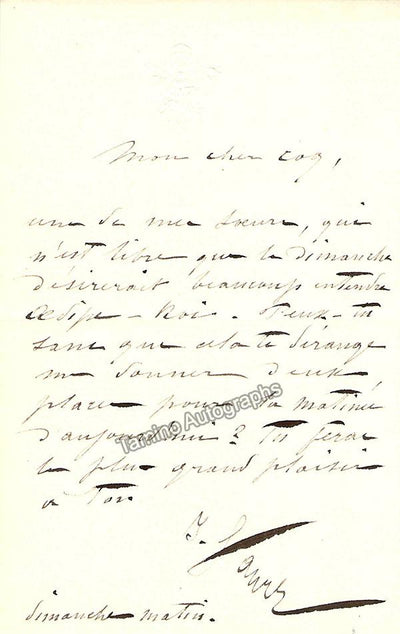 Mon cher coq,
une de mes sœurs, qui
n'est libre que le dimanche
désirerait beaucoup entendre
Œdipe-Roi. Peux-tu
sans que cela te dérange
me donner deux
places pour la matinée
d'aujourd'hui? Tu feras
le plus grand plaisir
à ton
J.
dimanche matin.
Tamino Autographs